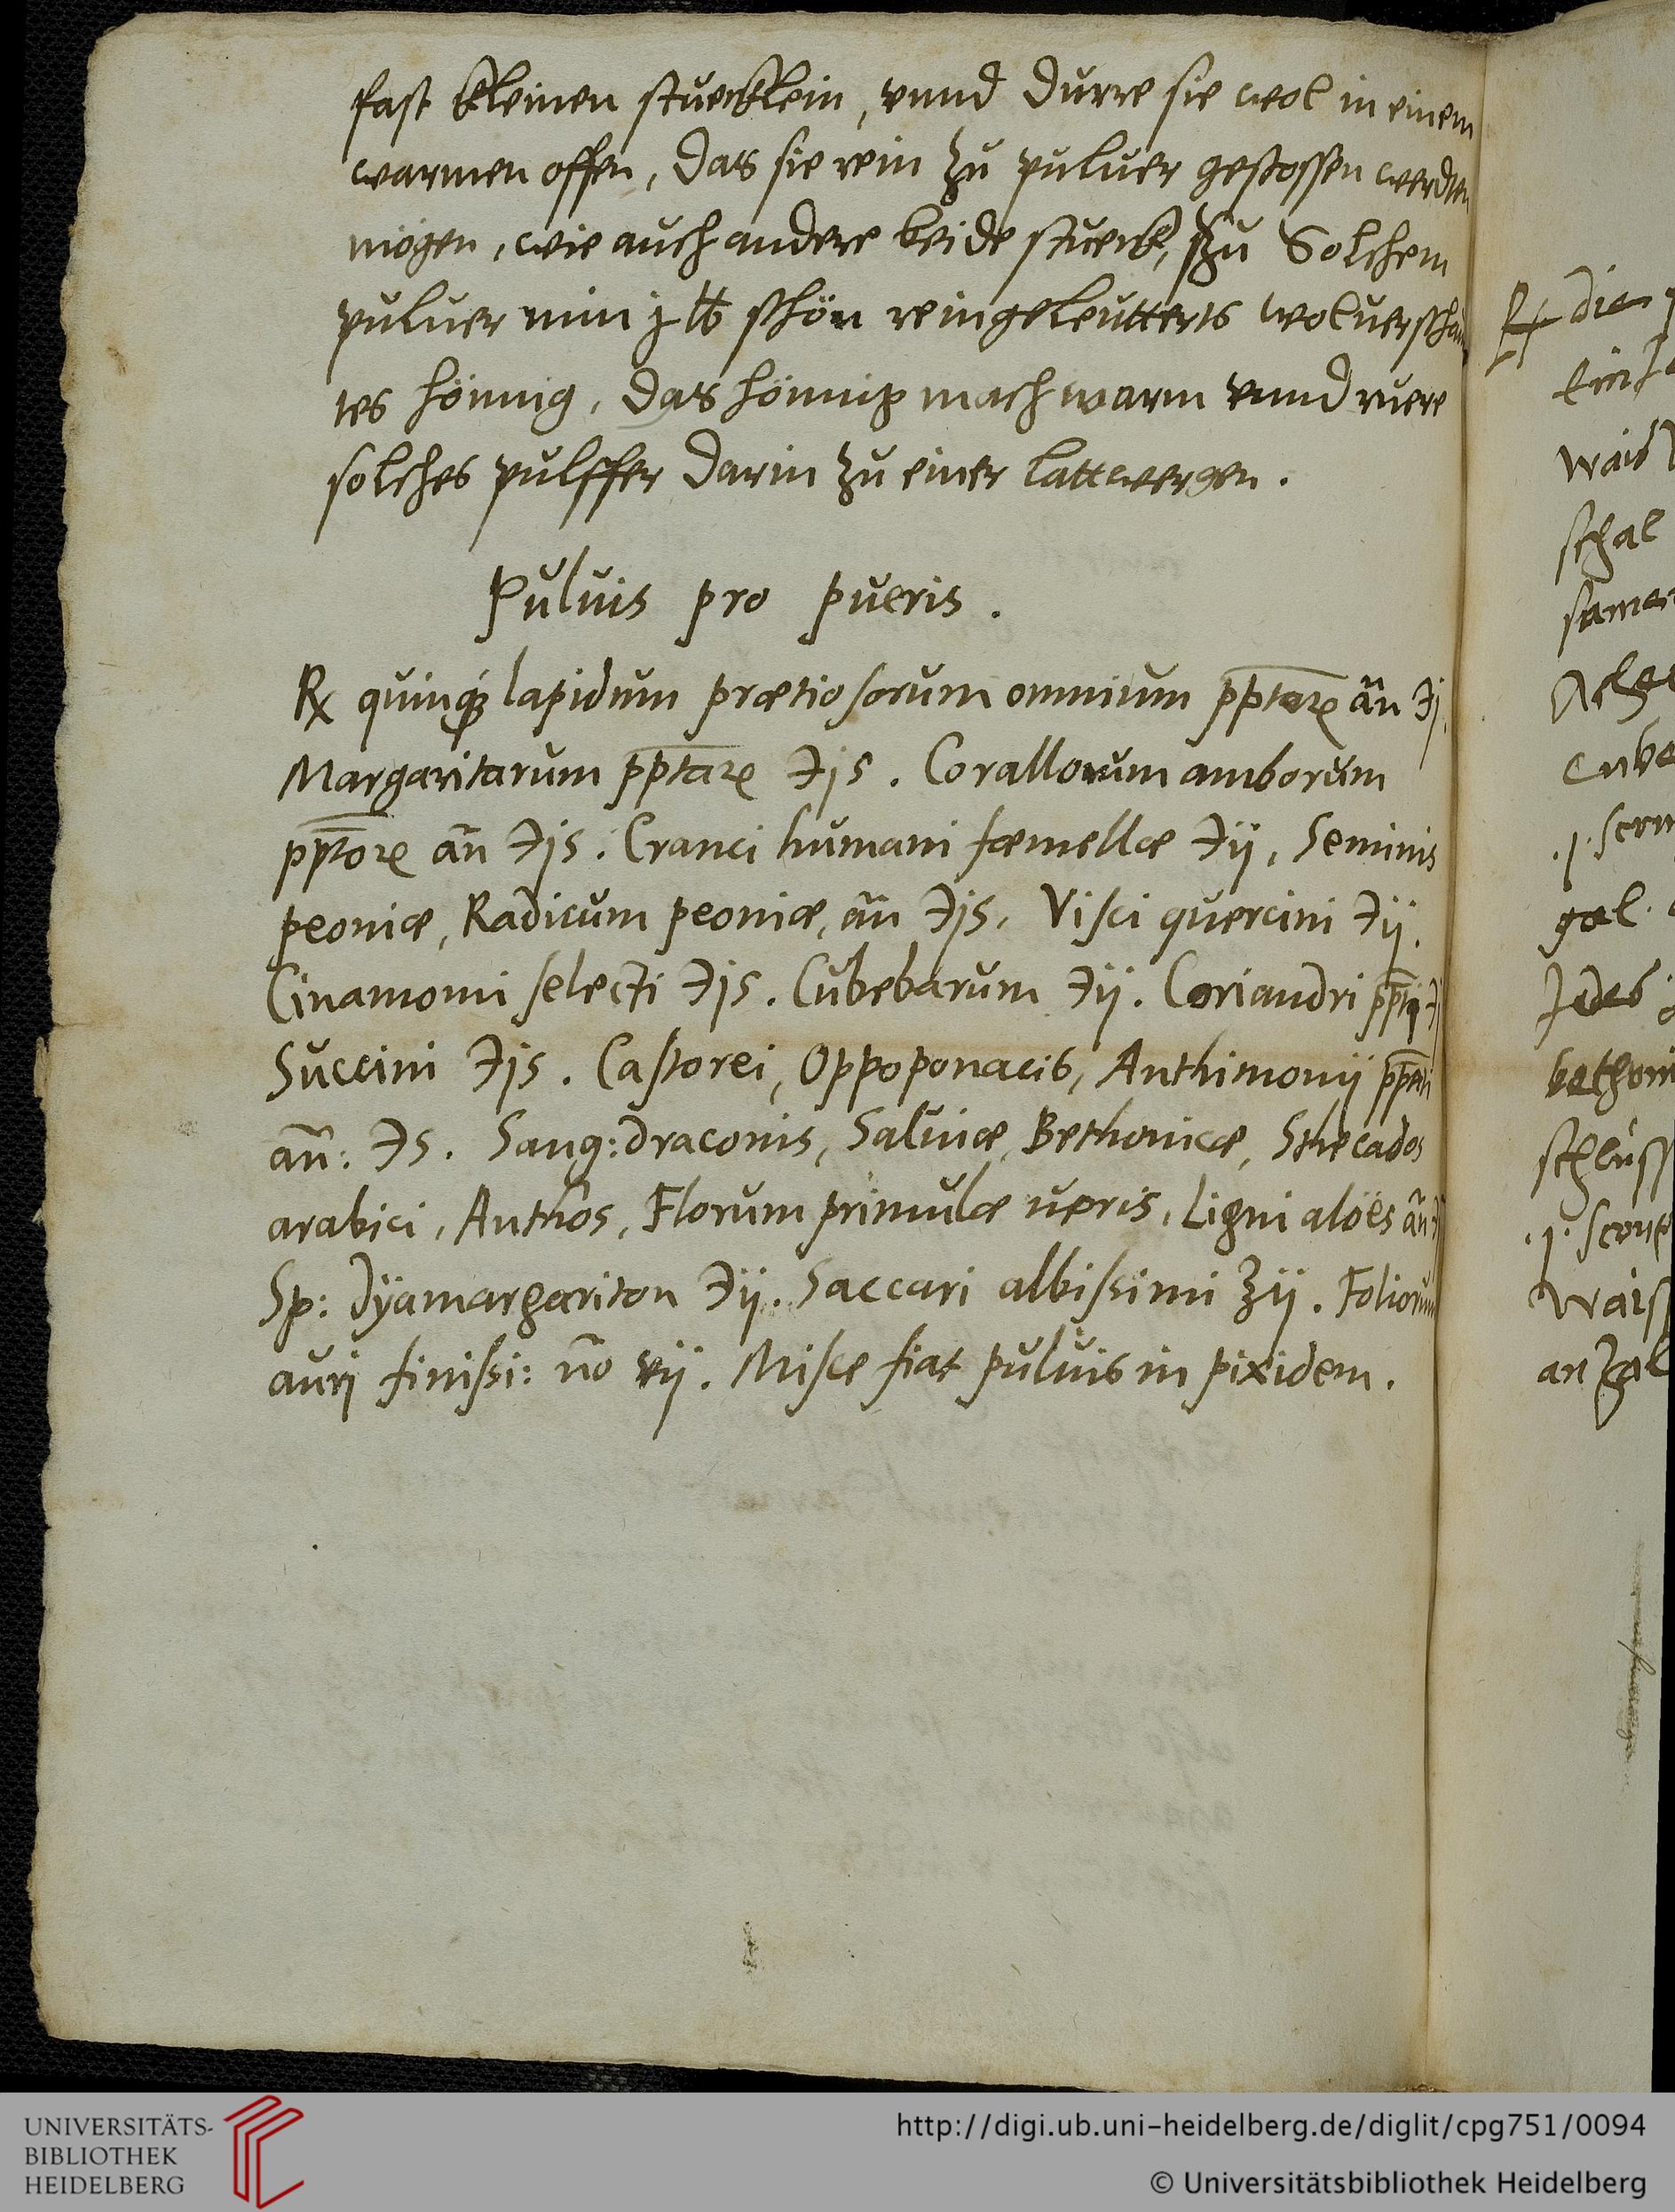 fast kleinen stuecklein, vnnd durre sie wol in einem
warmen offen, das sie rein zu puluer gestossen werden
mögen, wie auch andere beide stueck, Zu Solchem
puluer nim j ℔ schön reingeleutterts woluerschaum
tes hönnig, das hönnig mach warm vnnd ruere
solches pulffer darin zu einer lattwergen.
Puluis pro pueris.
℞ quinqꝫ lapidum prætiosorum omnium pp̄taꝝ añ ℈j.
Margaritarum pp̄taꝝ ℈js. Corallorum amborum
pp̄toꝝ añ ℈js. Cranei humani fœmellæ ℈ij, Seminis
peoniæ, Radicum peoniæ, añ ℈js, Visci quercini ℈ij.
Cinamomi selecti ℈js. Cubebarum ℈ij. Coriandri pp̄ti ℈j
Succini ℈js. Castorei, Oppoponacis, Anthimonij pp̄ati
añ: ℈s. Sang: draconis, Saluiæ, Bethonicæ, Sthecados
arabici, Anthos, Florum primulæ ueris, Ligni aloës añ
Sp: dÿamargariton ℈ij. Saccari albissimi ℥ij. Foliorum
auri finissi: ño vij. Misce fiat puluis in pixidem.
℞ die
wais
schal
samen
cube
.j. scru
gal.
Jedes
bethoni
schlüss
.j. scrup
Waiss
an Zal
UNIVERSITÄTS-
BIBLIOTHEK
HEIDELBERG
http://digi.ub.uni-heidelberg.de/diglit/cpg751/0094
© Universitätsbibliothek Heidelberg